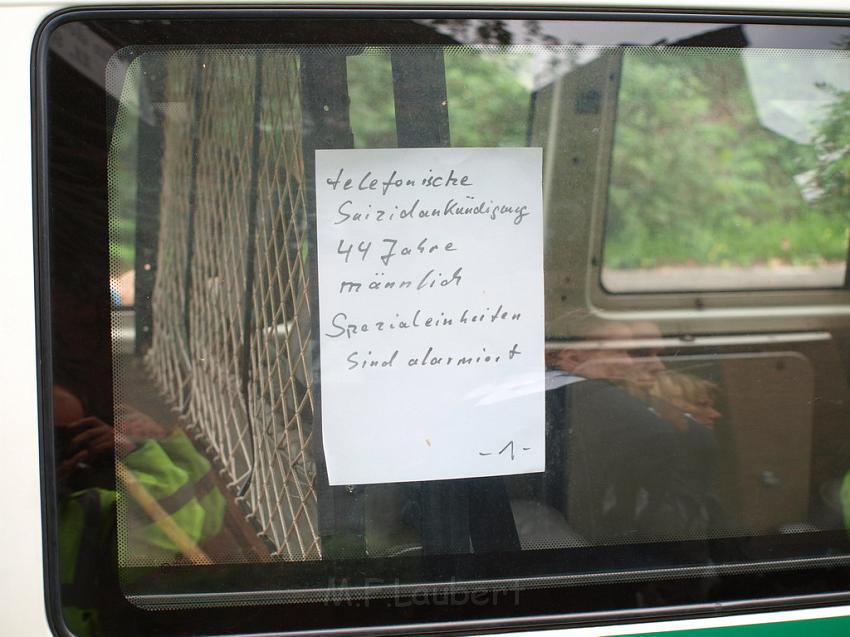 telefonische
Suizidankündigung
44 Jahre
männlich
Spezialeinheiten
sind alarmiert
-1-
M.F.Laubert